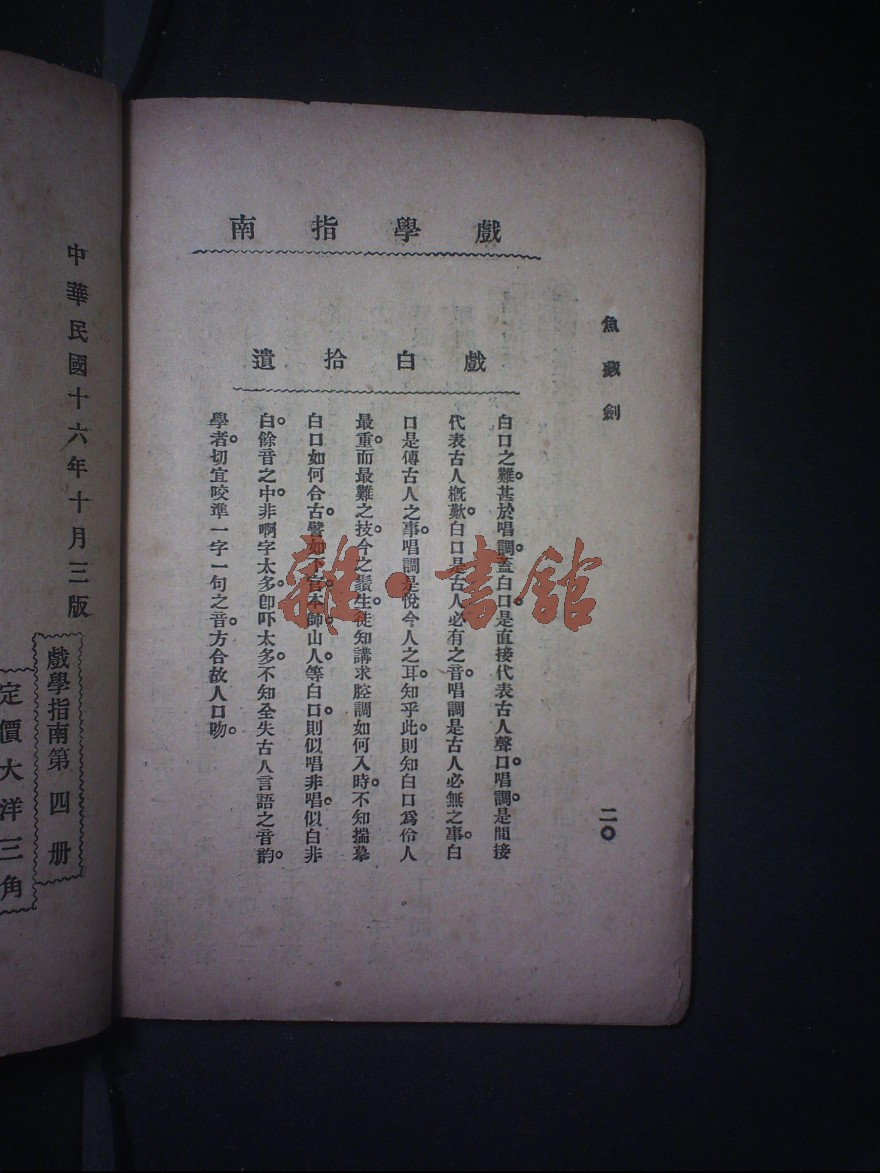 戲學指南
魚藏劍
二〇
戲白拾遺
白口之難。甚於唱調。蓋白口是直接代表古人聲口。唱調。是間接
代表古人概歎。白口是古人必有之音。唱調是古人必無之事。白
口是傳古人之事。唱調是悅今人之耳。知乎此。則知白口爲伶人
最重。而最難之技。今之鬚生。徒知講求腔調如何入時。不知揣摹
白口如何合古。譬如下官。本帥。山人。等白口。則似唱非唱。似白非
白。餘音之中。非啊字太多。卽吓太多。不知全失古人言語之音韵。
學者。切宜咬準一字一句之音。方合故人口吻。
中華民國十六年十月三版
戲學指南第四册
定價大洋三角
雜·書館